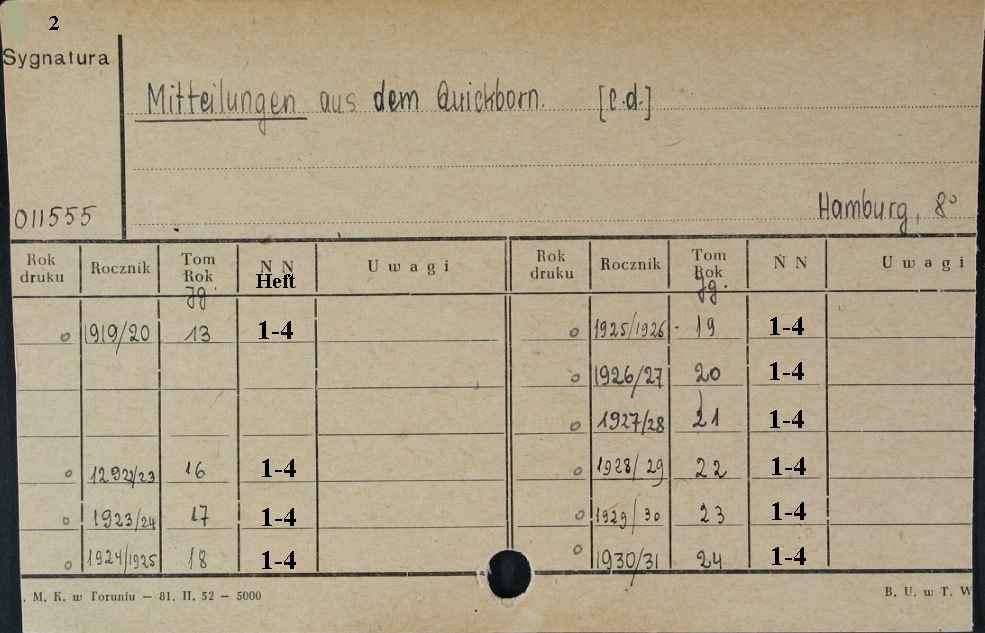 2
Sygnatura
Mitteilungen aus dem Quickborn. [e.d.]
011555
Hamburg, 8°
Rok druku Rocznik Tom Rok Jg. N N Heft Uwagi Rok druku Rocznik Tom Rok Jg. N N Uwagi
o 1919/20 13 1-4 o 1925/1926 - 19 1-4
o 1926/27 20 1-4
o 1927/28 21 1-4
o 1292/23 16 1-4 o 1928/29 22 1-4
o 1923/24 17 1-4 o 1929/30 23 1-4
o 1924/1925 18 1-4 o 1930/31 24 1-4
. M. K. w Toruniu — 81. II. 52 — 5000 B. U. w T. W